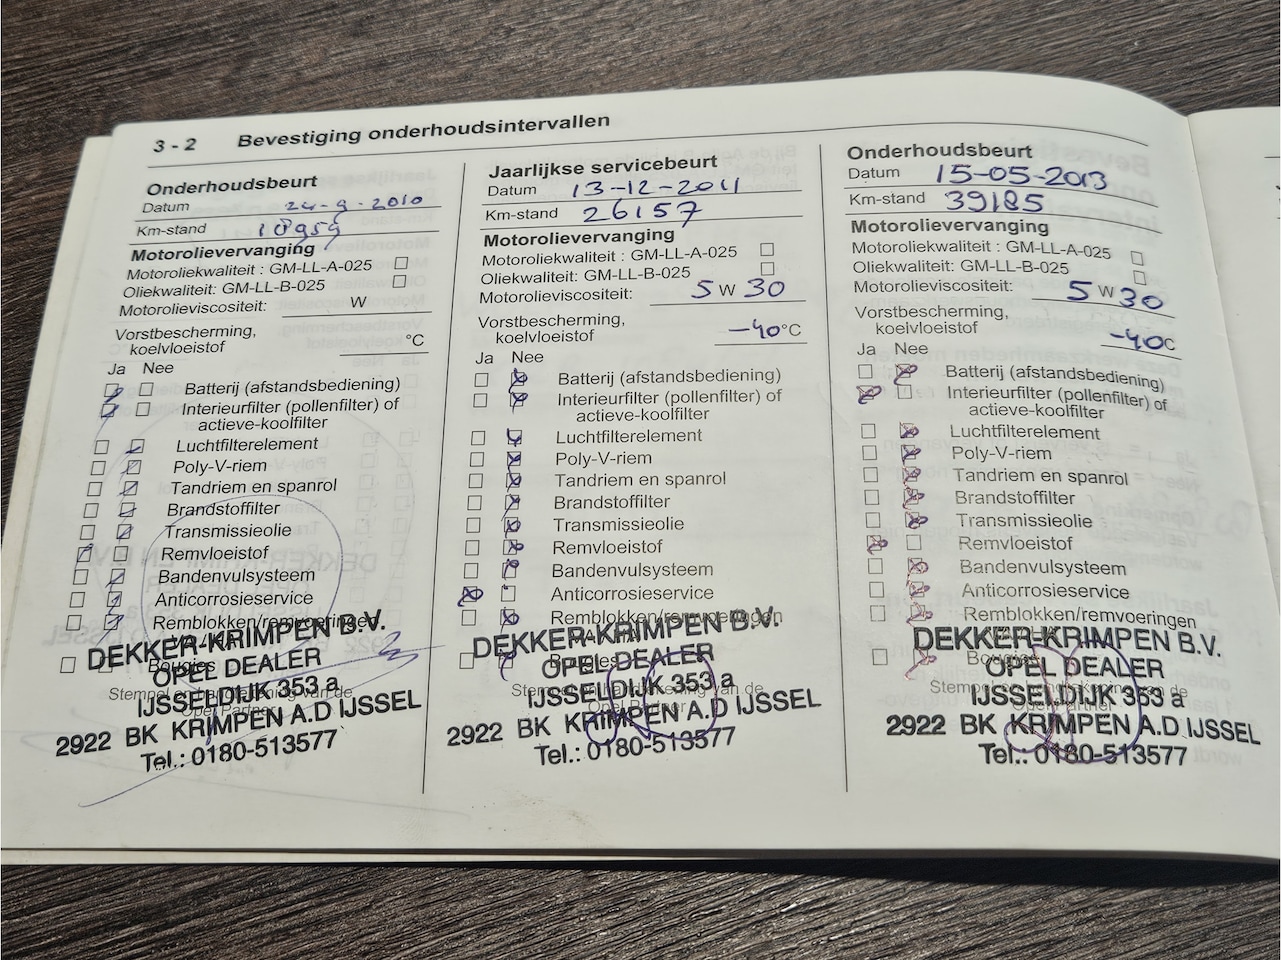 3 - 2 Bevestiging onderhoudsintervallen
Onderhoudsbeurt
Datum 24-9-2010
Km-stand 10959
Motorolievervanging
Motoroliekwaliteit : GM-LL-A-025
Oliekwaliteit: GM-LL-B-025
Motorolieviscositeit: W
Vorstbescherming,
koelvloeistof °C
Ja Nee
Batterij (afstandsbediening)
Interieurfilter (pollenfilter) of
actieve-koolfilter
Luchtfilterelement
Poly-V-riem
Tandriem en spanrol
Brandstoffilter
Transmissieolie
Remvloeistof
Bandenvulsysteem
Anticorrosieservice
Remblokken/remvoeringen
Bougies
Stempel en handtekening van de
Opel Partner
DEKKER-KRIMPEN B.V.
OPEL DEALER
IJSSELDIJK 353 a
2922 BK KRIMPEN A.D IJSSEL
Tel.: 0180-513577
Jaarlijkse servicebeurt
Datum 13-12-2011
Km-stand 26157
Motorolievervanging
Motoroliekwaliteit : GM-LL-A-025
Oliekwaliteit: GM-LL-B-025
Motorolieviscositeit: 5 W 30
Vorstbescherming,
koelvloeistof -40°C
Ja Nee
Batterij (afstandsbediening)
Interieurfilter (pollenfilter) of
actieve-koolfilter
Luchtfilterelement
Poly-V-riem
Tandriem en spanrol
Brandstoffilter
Transmissieolie
Remvloeistof
Bandenvulsysteem
Anticorrosieservice
Remblokken/remvoeringen
Stempel en handtekening van de
Opel Partner
DEKKER-KRIMPEN B.V.
OPEL DEALER
IJSSELDIJK 353 a
2922 BK KRIMPEN A.D IJSSEL
Tel.: 0180-513577
Onderhoudsbeurt
Datum 15-05-2013
Km-stand 39185
Motorolievervanging
Motoroliekwaliteit : GM-LL-A-025
Oliekwaliteit: GM-LL-B-025
Motorolieviscositeit: 5 W 30
Vorstbescherming,
koelvloeistof -40°C
Ja Nee
Batterij (afstandsbediening)
Interieurfilter (pollenfilter) of
actieve-koolfilter
Luchtfilterelement
Poly-V-riem
Tandriem en spanrol
Brandstoffilter
Transmissieolie
Remvloeistof
Bandenvulsysteem
Anticorrosieservice
Remblokken/remvoeringen
Bougies
Stempel en handtekening van de
Opel Partner
DEKKER-KRIMPEN B.V.
OPEL DEALER
IJSSELDIJK 353 a
2922 BK KRIMPEN A.D IJSSEL
Tel.: 0180-513577